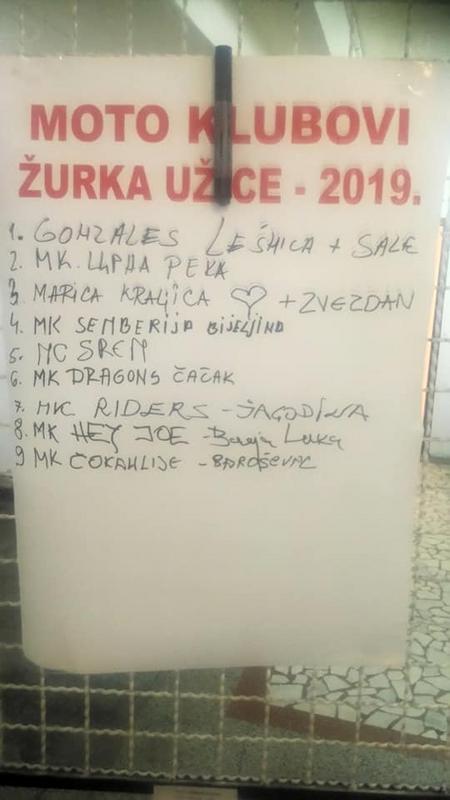 MOTO KLUBOVI
ŽURKA UŽICE - 2019.
1. GONZALES LEŠNICA + SALE
2. MK. ЦРНА РЕКА
3 MARICA KRALJICA ♡ + ZVEZDAN
4. MK SEMBERIJA BIJELJINA
5. MC SREM
6. MK DRAGONS ČAČAK
7. MK RIDERS - JAGODINA
8. MK HEY JOE - Banja Luka
9 MK ČOKANLIJE - BAROŠEVAC